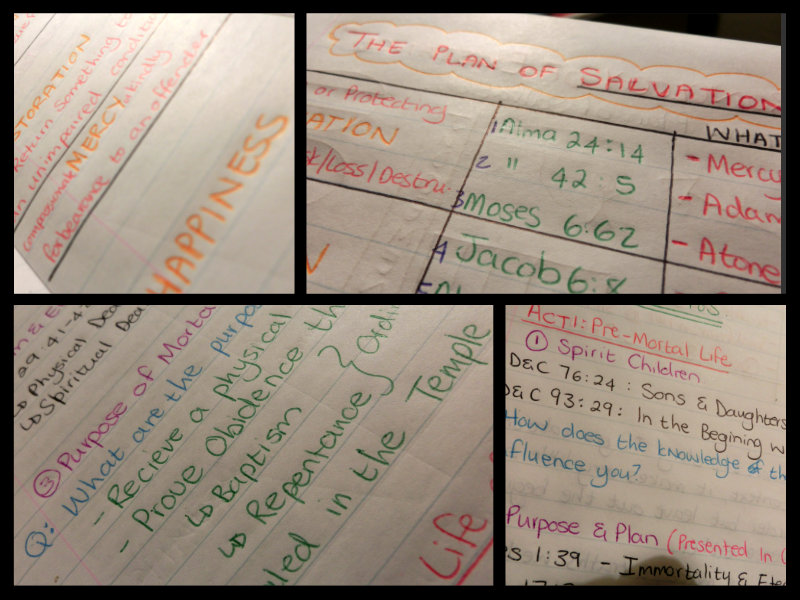 STORATION
Return something to
an unimpaired condition
compassionate MERCY kindly
forbearance to an offender
HAPPINESS
THE PLAN OF SALVATION
or Protecting
ATION
/Loss/Destru
1 Alma 24:14
2 " 42:5
3 Moses 6:62
4 Jacob 6:8
WHAT
- Mercy
- Adam
- Atone
29 41-4
↳ Physical Dea
↳ Spiritual Dea
③ Purpose of Morta
Q: What are the purpo
- Recieve a physical
- Prove Obidence th
↳ Baptism
↳ Repentance } Ordi
led in the Temple
Life
ACT1: Pre-Mortal Life
① Spirit Children
D&C 76:24: Sons & Daughters
D&C 93:29: In the Begining w
How does the knowledge of th
fluence you?
Purpose & Plan (Presented In
s 1:39 - Immortality & Ete